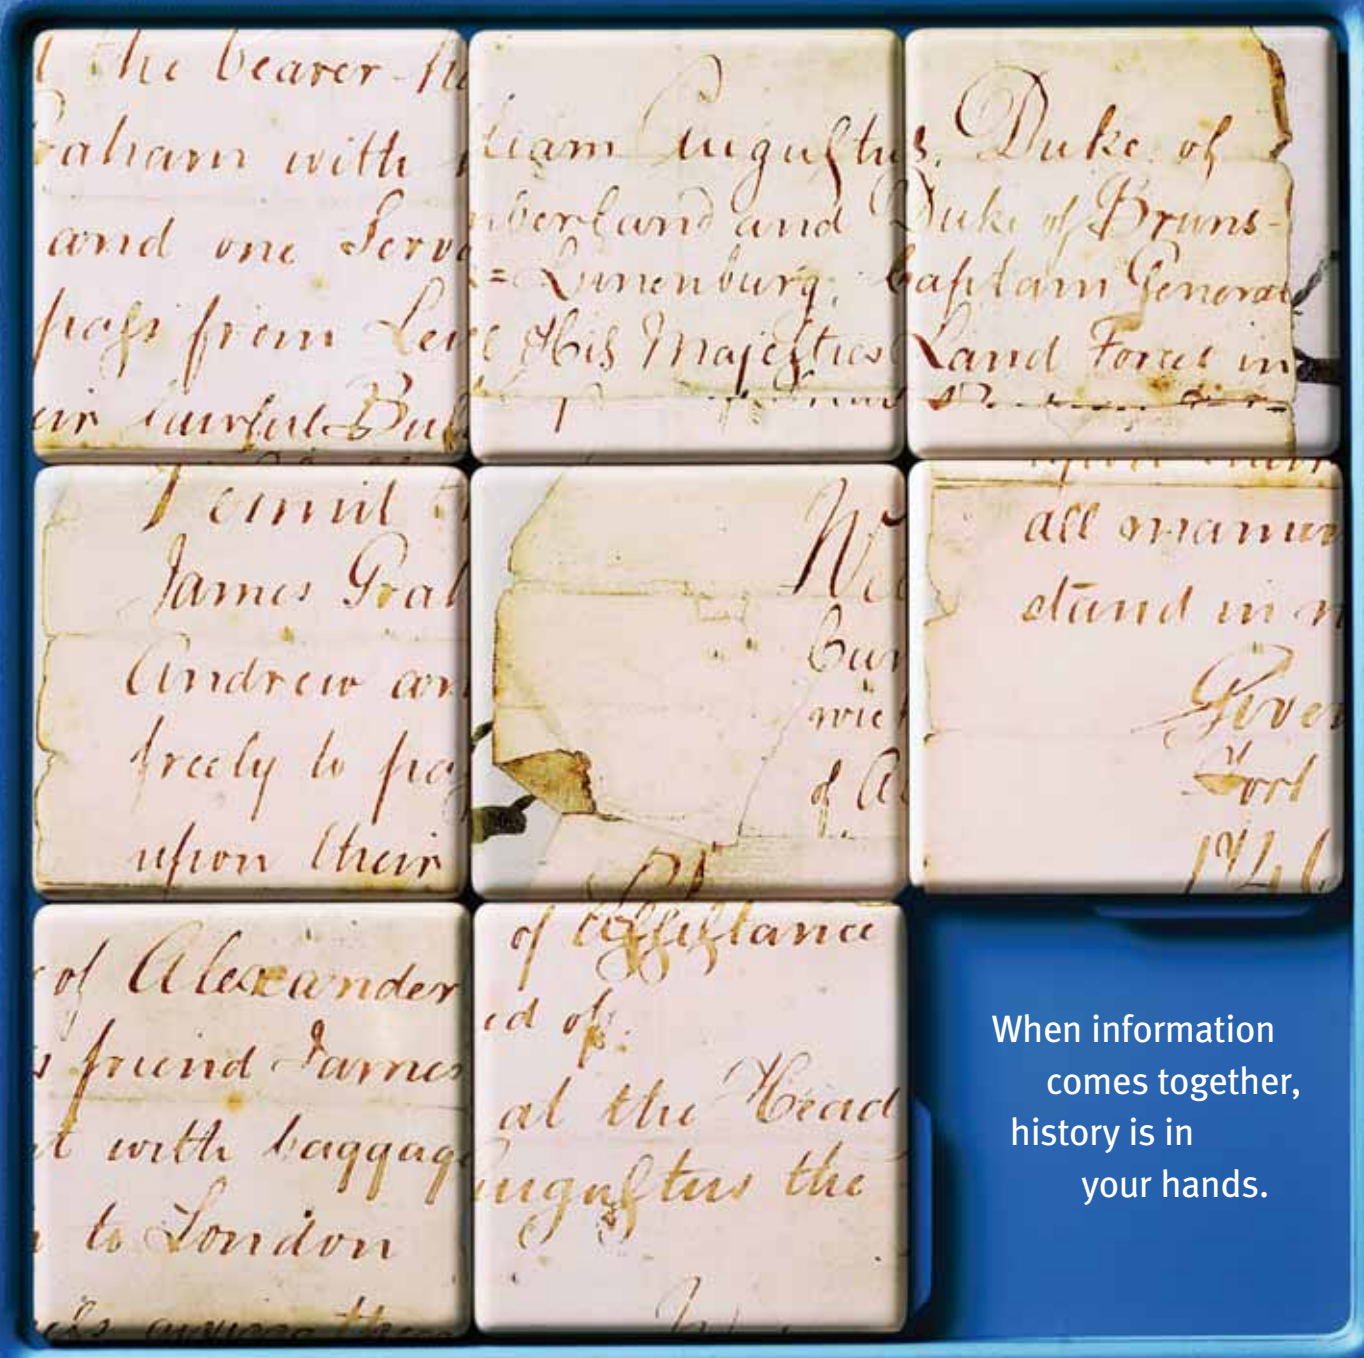 the bearer
raham with
and one Serv
pass from Le
eir lawful Bu
liam Augustus
nberland and
= Lunenburg,
His Majesties
Duke of
Duke of Bruns-
Captain General
Land Forces in
Permit
James Grah
Andrew an
freely to pa
upon their
Wil
bur
wick
of A
all manner
stand in n
Given
Fort
1746
of Alexander
friend James
t with baggag
to London
of Assistance
ed of.
at the Head
Augustus the
When information
comes together,
history is in
your hands.